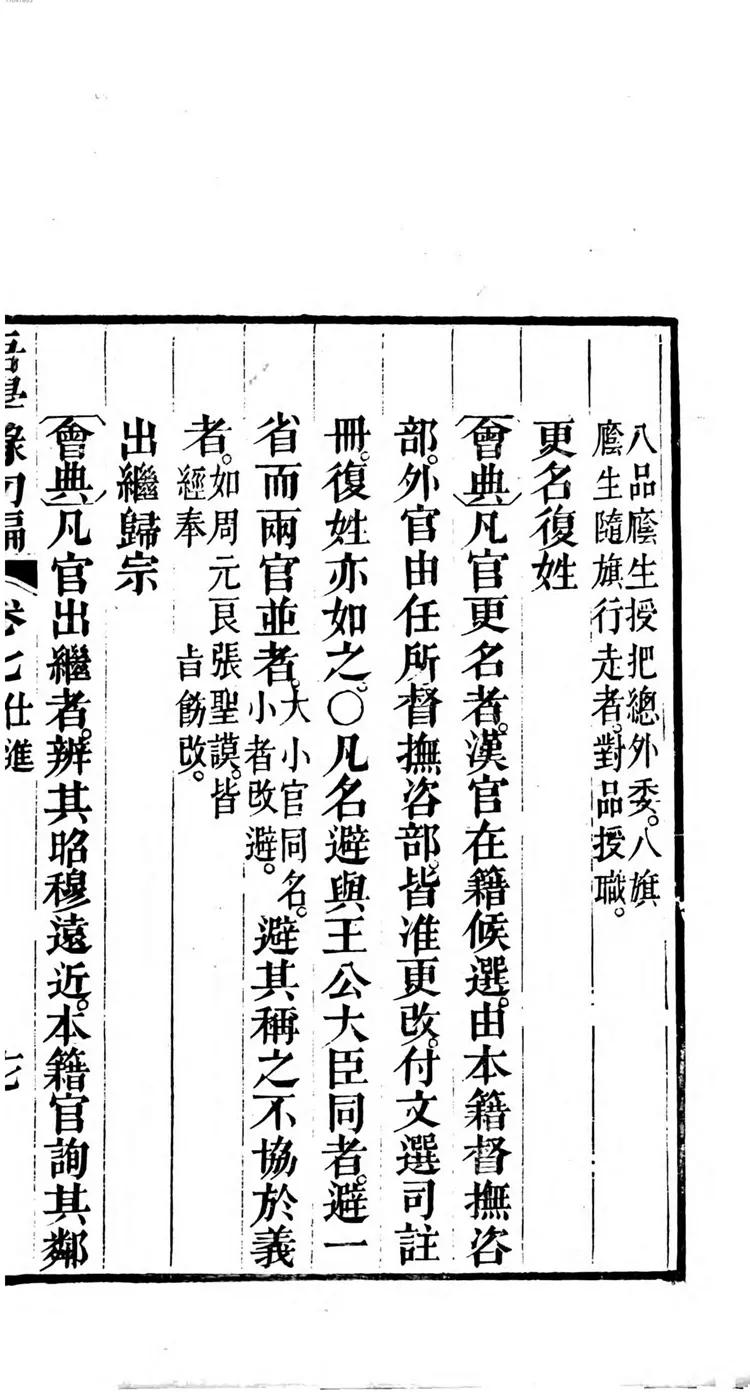 八品廕生授把總外委。八旗
廕生隨旗行走者。對品授職。
更名復姓
會典凡官更名者。漢官在籍候選。由本籍督撫咨
部。外官由任所督撫咨部。皆准更改。付文選司註
冊。復姓亦如之。〇凡名避與王公大臣同者。避一
省而兩官並者。大小官同名。小者改避。避其稱之不協於義
者。如周元艮張聖謨。皆經奉旨飭改。
出繼歸宗
會典凡官出繼者。辨其昭穆遠近。本籍官詢其鄰
吾學錄初編 卷七 仕進 七